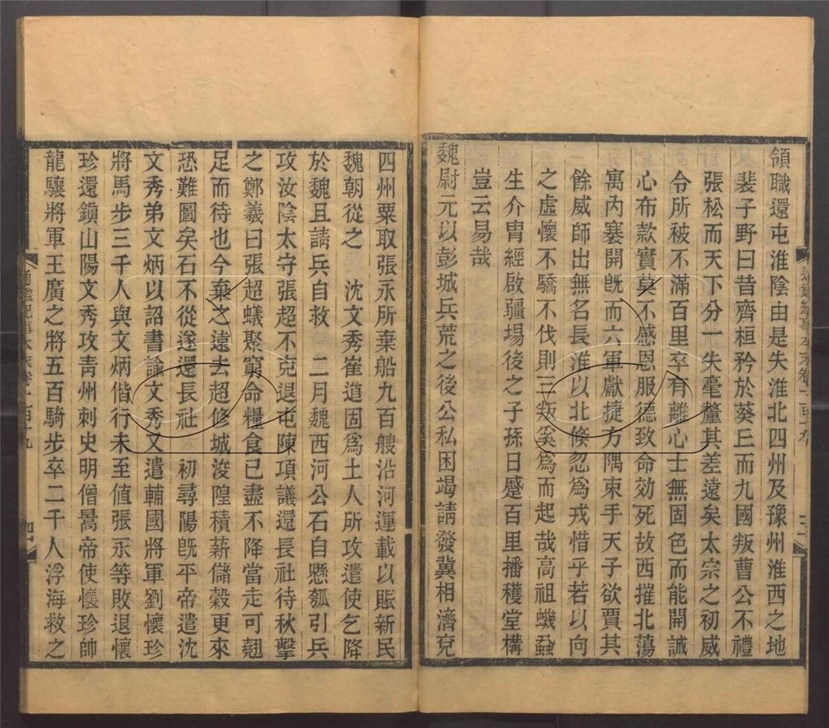 領職還屯淮陰由是失淮北四州及豫州淮西之地
裴子野曰昔齊桓矜於葵丘而九國叛曹公不禮
張松而天下分一失毫釐其差遠矣太宗之初威
令所被不滿百里卒有離心士無固色而能開誠
心布款實莫不感恩服德致命効死故西摧北蕩
寓內褰開旣而六軍獻捷方隅束手天子欲賈其
餘威師出無名長淮以北倐忽爲戎惜乎若以向
之虛懷不驕不伐則三叛奚爲而起哉高祖蟣蝨
生介胄經啟疆場後之子孫日蹙百里播穫堂構
豈云易哉
魏尉元以彭城兵荒之後公私困竭請發冀相濟兗
四州粟取張永所棄船九百艘沿河運載以賑新民
魏朝從之　沈文秀崔道固爲土人所攻遣使乞降
於魏且請兵自救　二月魏西河公石自懸瓠引兵
攻汝陰太守張超不克退屯陳項議還長社待秋擊
之鄭羲曰張超蟻聚窮命糧食已盡不降當走可翹
足而待也今棄之遠去超修城浚隍積薪儲穀更來
恐難圖矣石不從遂還長社　初尋陽旣平帝遣沈
文秀弟文炳以詔書諭文秀又遣輔國將軍劉懷珍
將馬步三千人與文炳偕行未至值張永等敗退懷
珍還鎭山陽文秀攻青州刺史明僧暠帝使懷珍帥
龍驤將軍王廣之將五百騎步卒二千人浮海救之
通鑑紀事本末卷一百十九